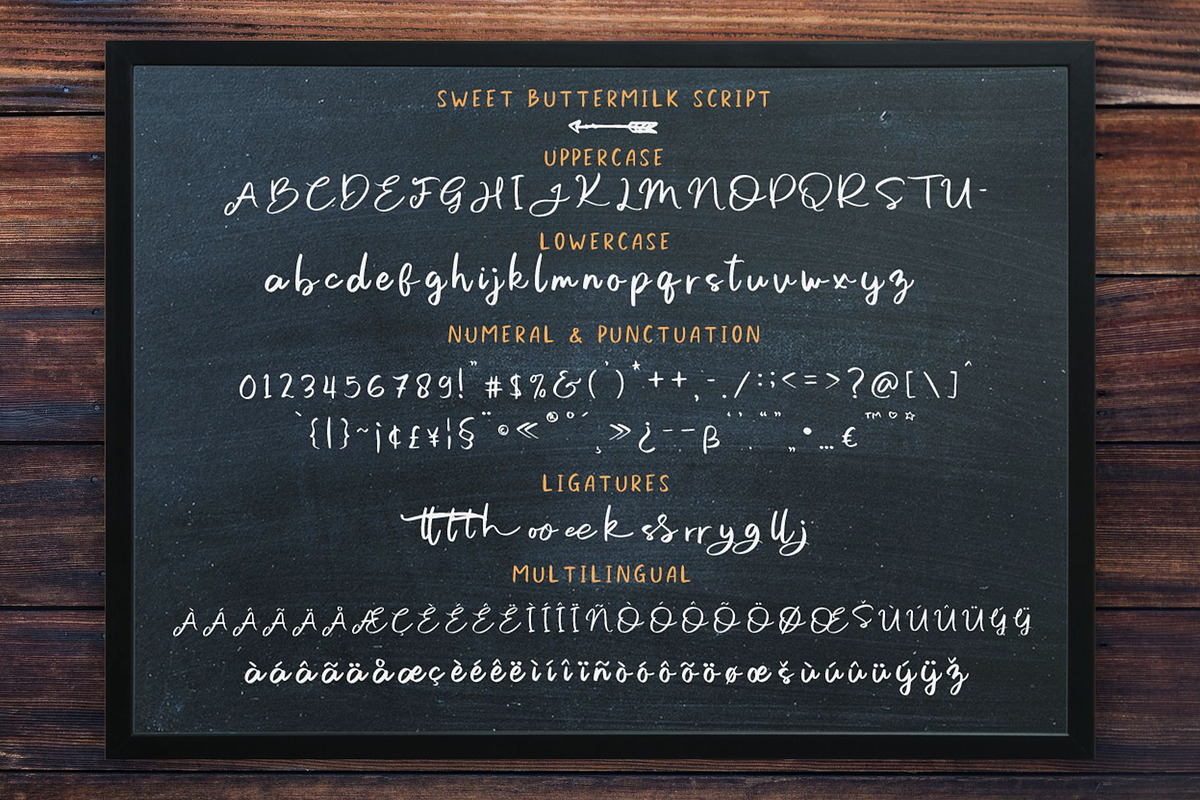 SWEET BUTTERMILK SCRIPT
UPPERCASE
ABCDEFGHIJKLMNOPQRSTU-
LOWERCASE
abcdefghijklmnopqrstuvwxyz
NUMERAL & PUNCTUATION
0123456789!"#$%&(')*++,-./:;<=>?@[\]^
`{|}~¡¢£¥¦§¨©«®°´¸»¿–—β‘’“”„•…€™♡☆
LIGATURES
tt tt th oo ee k ss rr y g ll j
MULTILINGUAL
ÀÁÂÃÄÅÆÇÈÉÊËÌÍÎÏÑÒÓÔÕÖØŒŠÙÚÛÜÝŸ
àáâãäåæçèéêëìíîïñòóôõöøœšùúûüýÿž